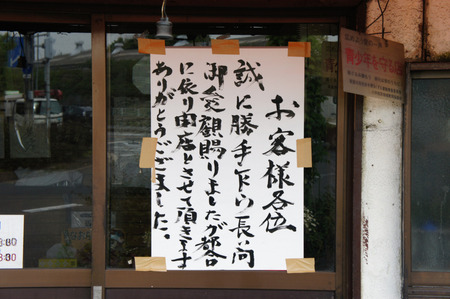 お客様各位
誠に勝手乍ら長い間
御愛顧賜りましたが都合
に依り閉店とさせて頂きます
ありがとうございました。
青少年を守る